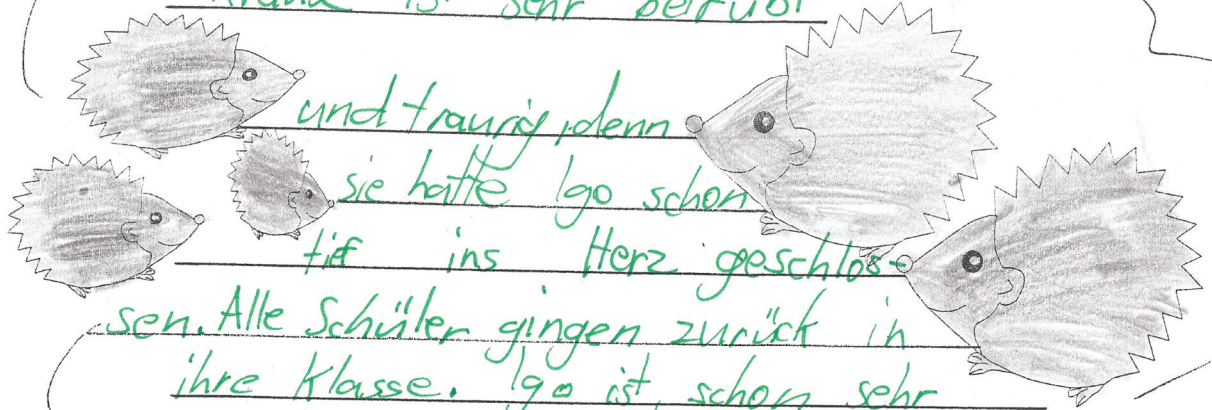 ist sehr betrübt
und traurig, denn
sie hatte Igo schon
tief ins Herz geschlos-
sen. Alle Schüler gingen zurück in
ihre Klasse. Igo ist schon sehr